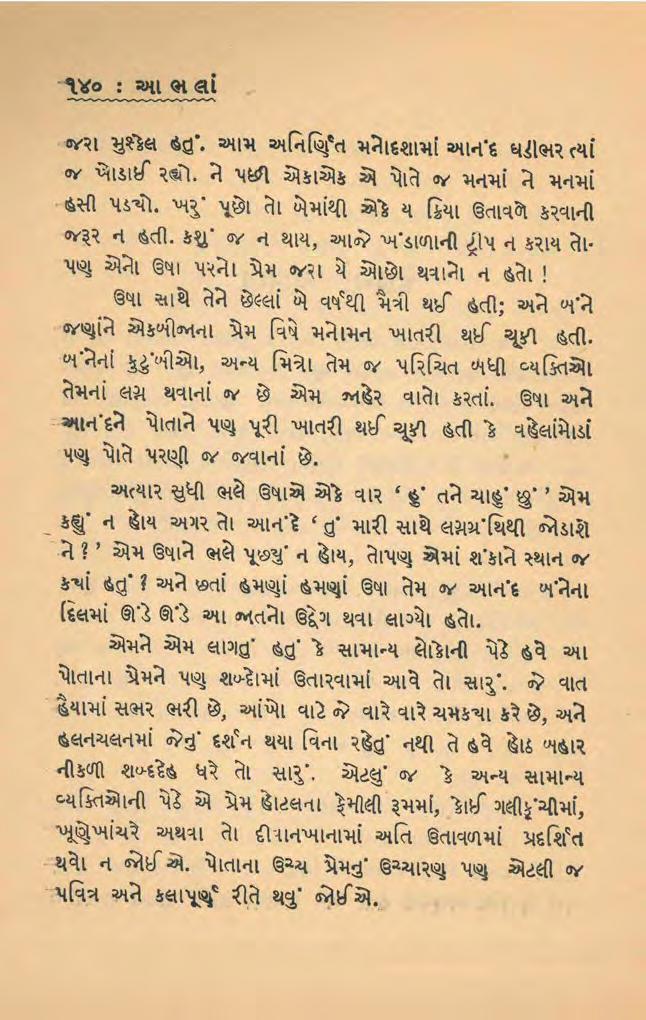 ૧૪૦ : આ ભ લાં
જરા મુશ્કેલ હતું. આમ અનિર્ણિત મનોદશામાં આનંદ ઘડીભર ત્યાં
જ ખોડાઈ રહ્યો. ને પછી એકાએક એ પોતે જ મનમાં ને મનમાં
હસી પડ્યો. ખરું પૂછો તો બેમાંથી એકે ય ક્રિયા ઉતાવળે કરવાની
જરૂર ન હતી. કશું જ ન થાય, આજે ખંડાળાની ટ્રીપ ન કરાય તો
પણ એનો ઉષા પરનો પ્રેમ જરા યે ઓછો થવાનો ન હતો !
ઉષા સાથે તેને છેલ્લાં બે વર્ષથી મૈત્રી થઈ હતી; અને બંને
જણાંને એકબીજાના પ્રેમ વિષે મનોમન ખાતરી થઈ ચૂકી હતી.
બંનેનાં કુટુંબીઓ, અન્ય મિત્રો તેમ જ પરિચિત બધી વ્યક્તિઓ
તેમનાં લગ્ન થવાનાં જ છે એમ જાહેર વાતો કરતાં. ઉષા અને
આનંદને પોતાને પણ પૂરી ખાતરી થઈ ચૂકી હતી કે વહેલાંમોડાં
પણ પોતે પરણી જ જવાનાં છે.
અત્યાર સુધી ભલે ઉષાએ એકે વાર ‘ હું તને ચાહું છું ’ એમ
કહ્યું ન હોય અગર તો આનંદે ‘ તું મારી સાથે લગ્નગ્રંથિથી જોડાશે
ને ? ’ એમ ઉષાને ભલે પૂછ્યું ન હોય, તોપણ એમાં શંકાને સ્થાન જ
ક્યાં હતું ? અને છતાં હમણાં હમણાં ઉષા તેમ જ આનંદ બંનેના
દિલમાં ઊંડે ઊંડે આ જાતનો ઉદ્વેગ થવા લાગ્યો હતો.
એમને એમ લાગતું હતું કે સામાન્ય લોકોની પેઠે હવે આ
પોતાના પ્રેમને પણ શબ્દોમાં ઉતારવામાં આવે તો સારું. જે વાત
હૈયામાં સભર ભરી છે, આંખો વાટે જે વારે વારે ચમક્યા કરે છે, અને
હલનચલનમાં જેનું દર્શન થયા વિના રહેતું નથી તે હવે હોઠ બહાર
નીકળી શબ્દદેહ ધરે તો સારું. એટલું જ કે અન્ય સામાન્ય
વ્યક્તિઓની પેઠે એ પ્રેમ હોટલના ફેમીલી રૂમમાં, કોઈ ગલીકૂંચીમાં,
ખૂણેખાંચરે અથવા તો દીવાનખાનામાં અતિ ઉતાવળમાં પ્રદર્શિત
થવો ન જોઈ એ. પોતાના ઉચ્ચ પ્રેમનું ઉચ્ચારણ પણ એટલી જ
પવિત્ર અને કલાપૂર્ણ રીતે થવું જોઈ એ.